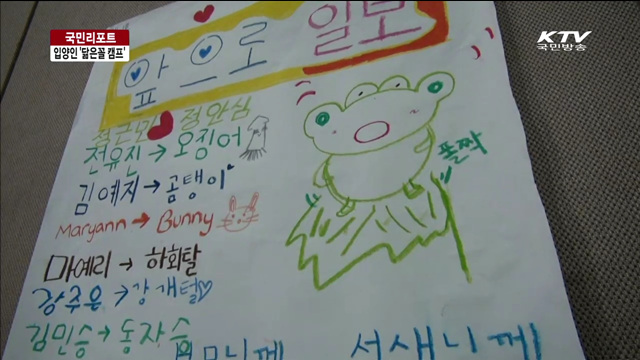 국민리포트
입양인 '닮은꼴 캠프'
KTV
국민방송
앞으로 일보
정근민 정안심
전유진 → 오징어
폴짝
김예지 → 곰탱이
Maryann → Bunny
마예리 → 하회탈
강주은 → 강개털
김민승 → 동자승
서새니께